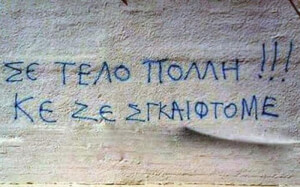 ΣΕ ΤΕΛΟ ΠΟΛΛΗ !!!
ΚΕ ΣΕ ΣΓΚΑΙΦΤΟΜΕ